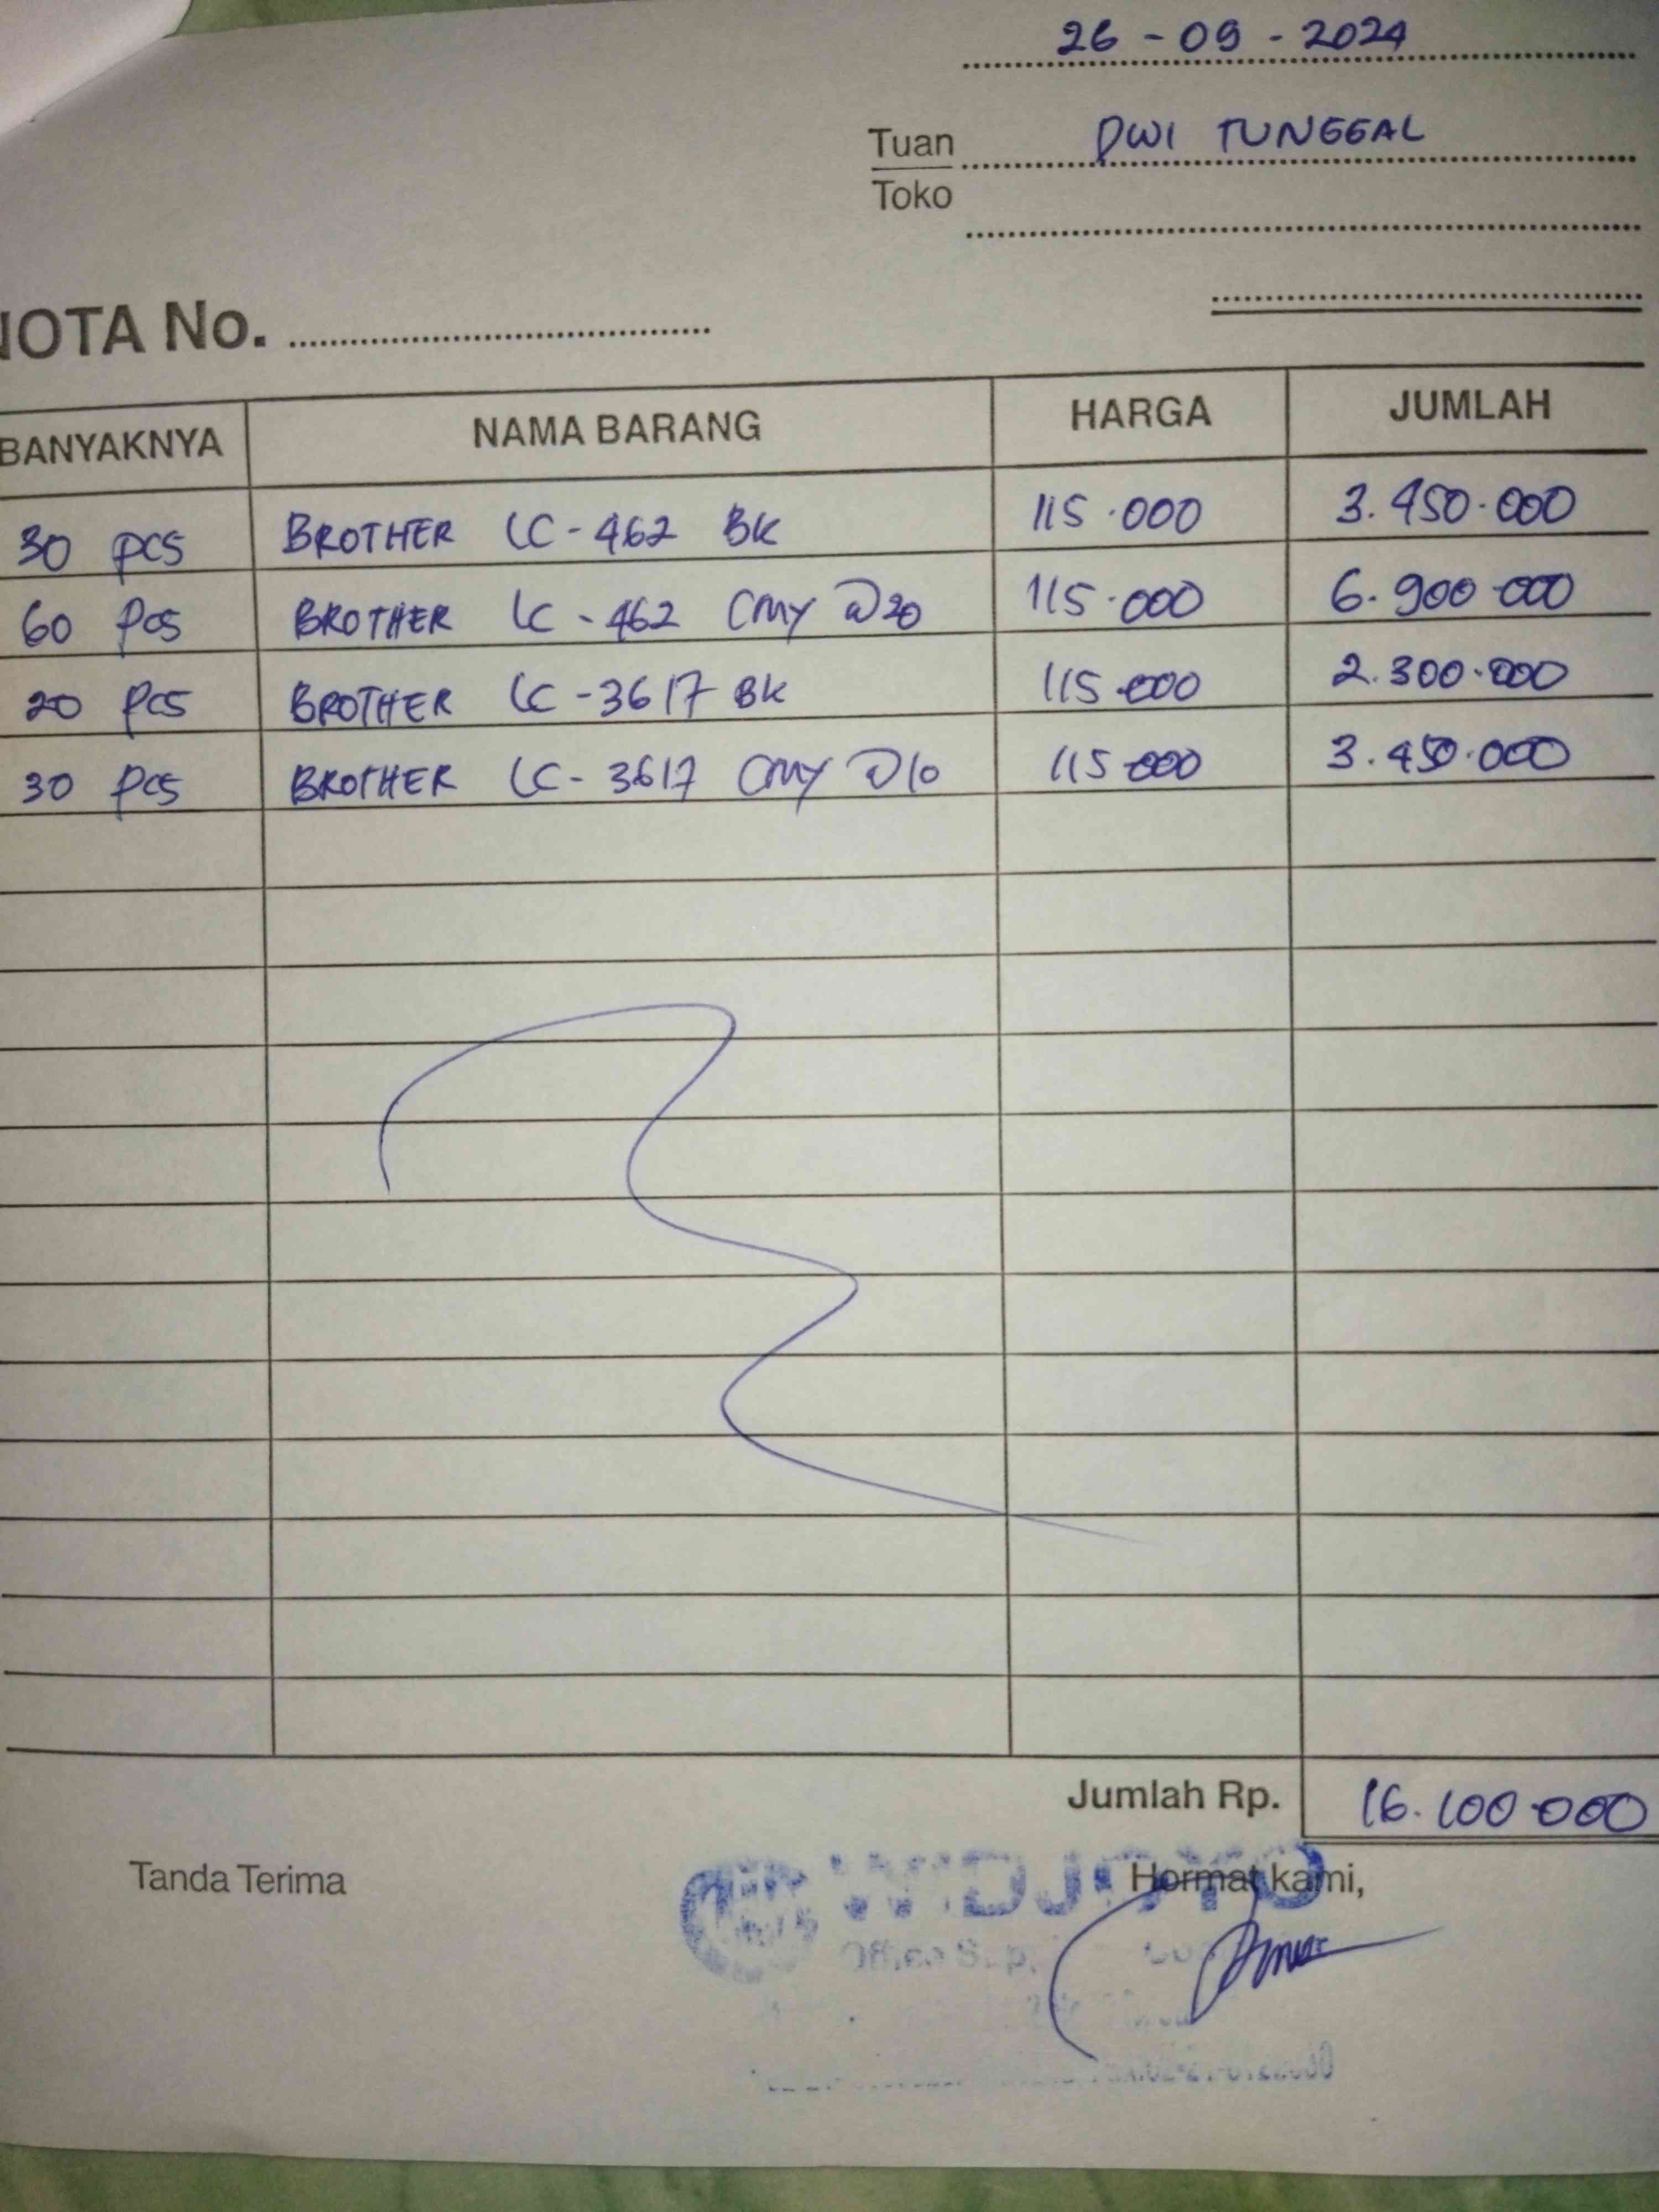 26 - 09 - 2024
Tuan DWI TUNGGAL
Toko
NOTA No.
BANYAKNYA NAMA BARANG HARGA JUMLAH
30 pcs BROTHER LC - 462 BK 115.000 3.450.000
60 Pcs BROTHER LC - 462 CMY @20 115.000 6.900.000
20 Pcs BROTHER LC - 3617 BK 115.000 2.300.000
30 Pcs BROTHER LC - 3617 CMY @10 115.000 3.450.000
Jumlah Rp. 16.100.000
Tanda Terima Hormat kami,